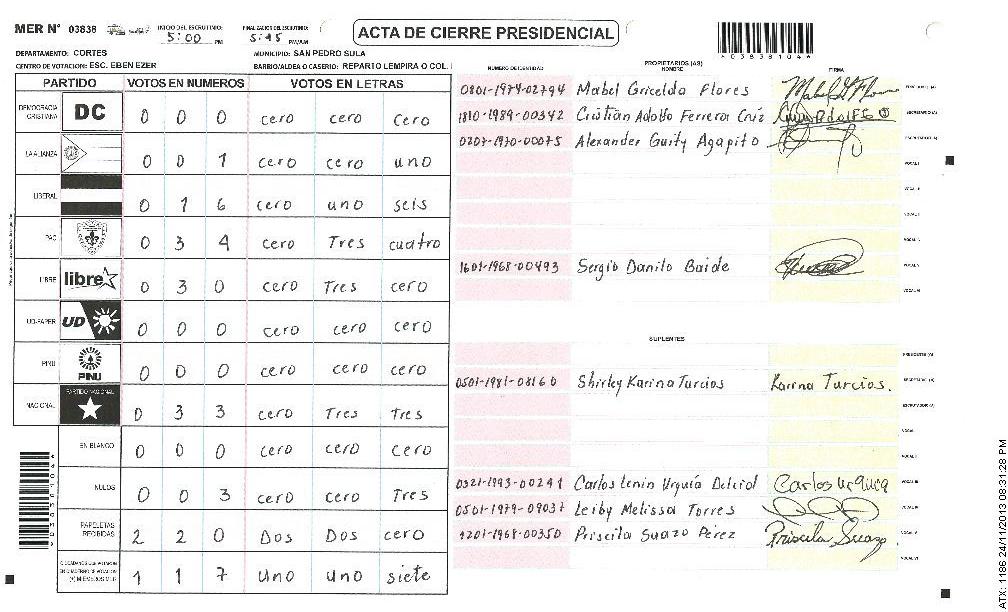 MER N° 03838
INICIO DEL ESCRUTINIO: 5:00 PM
FINALIZACION DEL ESCRUTINIO: 5:45 PM/AM
ACTA DE CIERRE PRESIDENCIAL
DEPARTAMENTO: CORTES
MUNICIPIO: SAN PEDRO SULA
CENTRO DE VOTACION: ESC. EBEN EZER
BARRIO/ALDEA O CASERIO: REPARTO LEMPIRA O COL.
PARTIDO VOTOS EN NUMEROS VOTOS EN LETRAS
DEMOCRACIA CRISTIANA DC 0 0 0 cero cero cero
LA ALIANZA 0 0 1 cero cero uno
LIBERAL 0 1 6 cero uno seis
PAC 0 3 4 cero Tres cuatro
LIBRE libre 0 3 0 cero Tres cero
UD-FAPER UD 0 0 0 cero cero cero
PINU PINU 0 0 0 cero cero cero
NACIONAL PARTIDO NACIONAL 0 3 3 cero Tres Tres
EN BLANCO 0 0 0 cero cero cero
NULOS 0 0 3 cero cero Tres
PAPELETAS RECIBIDAS 2 2 0 Dos Dos cero
CIUDADANOS QUE VOTARON EN CUADERNO DE VOTACION (+) MIEMBROS MER 1 1 7 uno uno siete
NUMERO DE IDENTIDAD
PROPIETARIOS (AS)
NOMBRE
FIRMA
0801-1974-02794 Mabel Gricelda Flores
1810-1989-00342 Cristian Adolfo Ferrera Cruz
0207-1970-00075 Alexander Guity Agapito
1601-1968-00493 Sergio Danilo Baide
SUPLENTES
0501-1981-08160 Shirley Karina Turcios Karina Turcios.
0321-1993-00291 Carlos Lenin Urquía Carlos Urquia
0501-1979-09037 Leiby Melissa Torres
1201-1968-00350 Priscila Suazo Perez Priscila Suazo
ATX: 1186 24/11/2013 08:31:28 PM